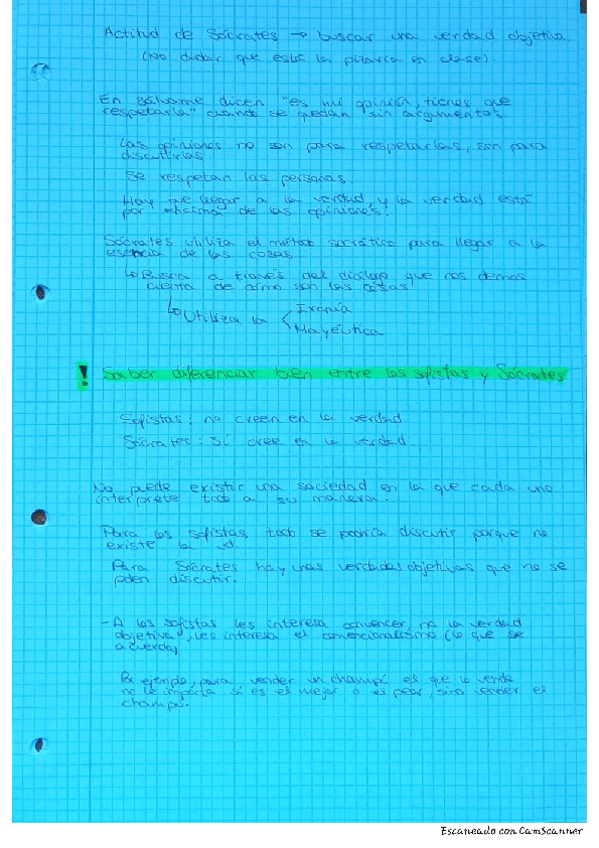 Actitud de Sócrates → buscar una verdad objetiva
(No dudar que está la pizarra en clase)
En Sálvame dicen "es mi opinión, tienes que
respetarla" cuando se quedan sin argumentos.
Las opiniones no son para respetarlas, son para
discutirlas.
Se respetan las personas.
Hay que llegar a la verdad, y la verdad está
por encima de las opiniones.
Sócrates utiliza el método socrático para llegar a la
esencia de las cosas.
↳ Busca a través del diálogo que nos demos
cuenta de cómo son las cosas
↳ Utiliza la < Ironía
Mayéutica
! Saber diferenciar bien entre los sofistas y Sócrates
Sofistas: no creen en la verdad
Sócrates: Sí cree en la verdad.
No puede existir una sociedad en la que cada uno
interprete todo a su manera.
Para los sofistas todo se podría discutir porque no
existe la vd.
Para Sócrates hay unas verdades objetivas que no se
pden discutir.
- A los sofistas les interesa convencer, no la verdad
objetiva, les interesa el convencionalismo (lo que se
acuerda)
Por ejemplo, para vender un champú el que lo vende
no le importa si es el mejor o el peor, sino vender el
champú.
Escaneado con CamScanner